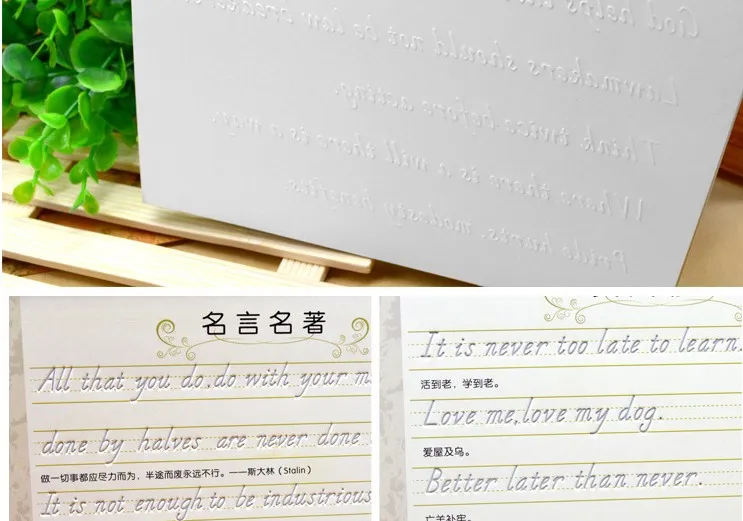 God helps
Lawmakers should not be law breakers.
Think twice before acting.
Where there is a will there is a way.
Pride hurts, modesty benefits.
名言名著
All that you do,do with your
done by halves are never done
做一切事都应尽力而为，半途而废永远不行。——斯大林（Stalin）
It is not enough to be industrious
It is never too late to learn.
活到老，学到老。
Love me,love my dog.
爱屋及乌。
Better later than never.
亡羊补牢。